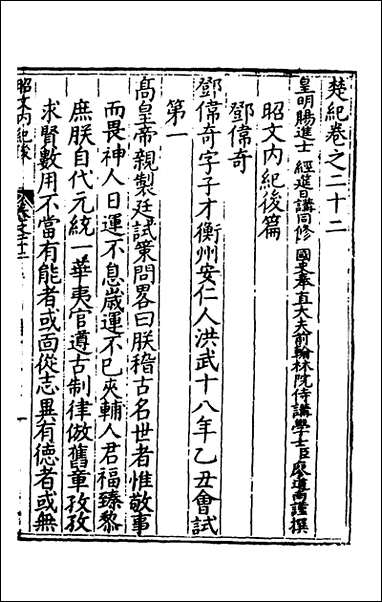 楚紀卷之二十二
皇明賜進士 經筵日講同修 國史奉直大夫前翰林院侍講學士臣廖道南謹撰
昭文內紀後篇
鄧偉奇
鄧偉奇字子才衡州安仁人洪武十八年乙丑會試
第一
高皇帝親製廷試策問畧曰朕稽古名世者惟敬事
而畏神人日運不息歲運不已夾輔人君福臻黎
庶朕自代元統一華夷官遵古制律倣舊章孜孜
求賢數用不當有能者或面從志異有德者或無
昭文內紀後